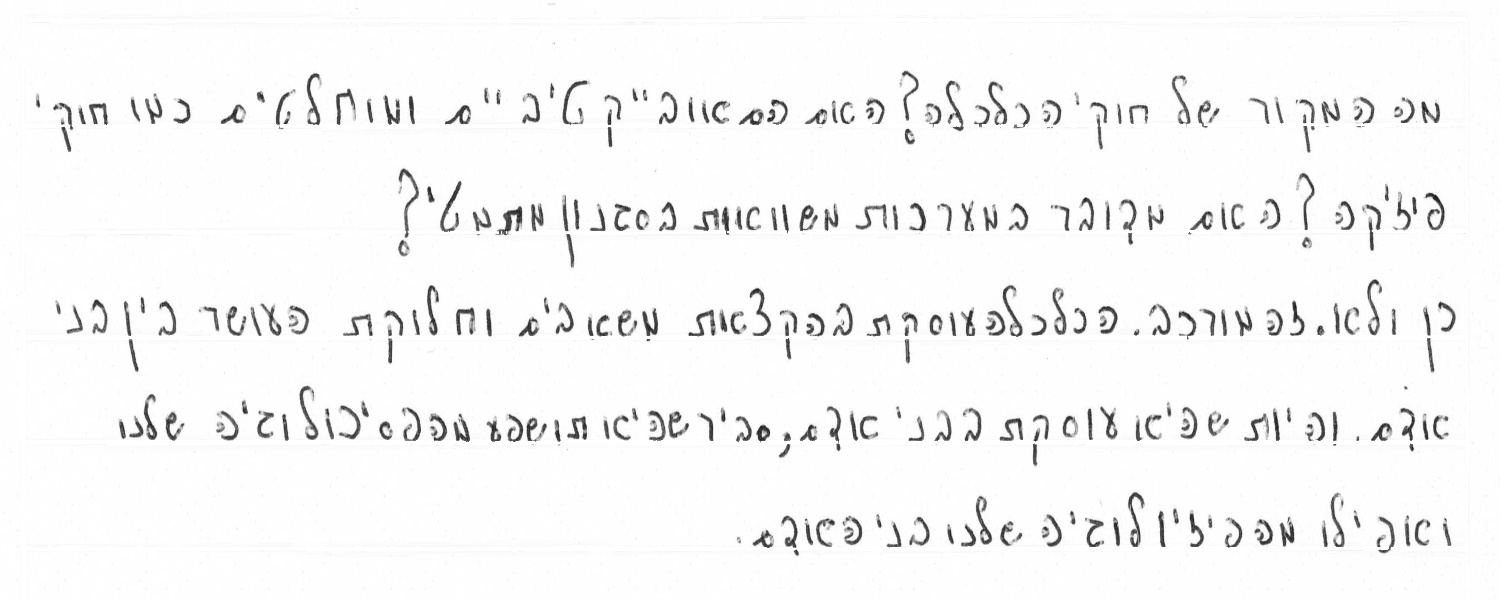 מה המקור של חוקי הכלכלה? האם הם אובייקטיביים ומוחלטים כמו חוקי
פיזיקה? האם מדובר במערכות משוואות בסגנון מתמטי?
כן ולא. זה מורכב. הכלכלה עוסקת בהקצאות משאבים וחלוקת העושר בין בני
אדם. והיות שהיא עוסקת בבני אדם, סביר שהיא תושפע מהפסיכולוגיה שלנו
ואפילו מהפיזיולוגיה שלנו בני האדם.